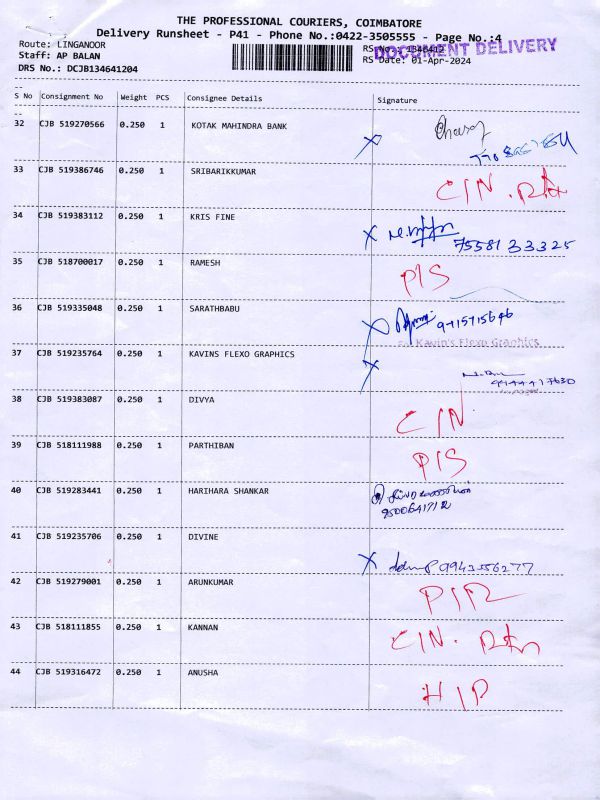 THE PROFESSIONAL COURIERS, COIMBATORE
Delivery Runsheet - P41 - Phone No.:0422-3505555 - Page No.:4
Route: LINGANOOR
Staff: AP BALAN
DRS No.: DCJB134641204
RS No.: 1346412
DOCUMENT DELIVERY
RS Date: 01-Apr-2024
S No Consignment No Weight PCS Consignee Details Signature
32 CJB 519270566 0.250 1 KOTAK MAHINDRA BANK
33 CJB 519386746 0.250 1 SRIBARIKKUMAR CIN. Rtn
34 CJB 519383112 0.250 1 KRIS FINE 7558133325
35 CJB 518700017 0.250 1 RAMESH PIS
36 CJB 519335048 0.250 1 SARATHBABU 9715715646
For Kavin's Flexo Graphics
37 CJB 519235764 0.250 1 KAVINS FLEXO GRAPHICS
38 CJB 519383087 0.250 1 DIVYA CIN.
39 CJB 518111988 0.250 1 PARTHIBAN PIS
40 CJB 519283441 0.250 1 HARIHARA SHANKAR
41 CJB 519235706 0.250 1 DIVINE 9943556277
42 CJB 519279001 0.250 1 ARUNKUMAR PIR
43 CJB 518111855 0.250 1 KANNAN CIN. Rtn
44 CJB 519316472 0.250 1 ANUSHA HIP